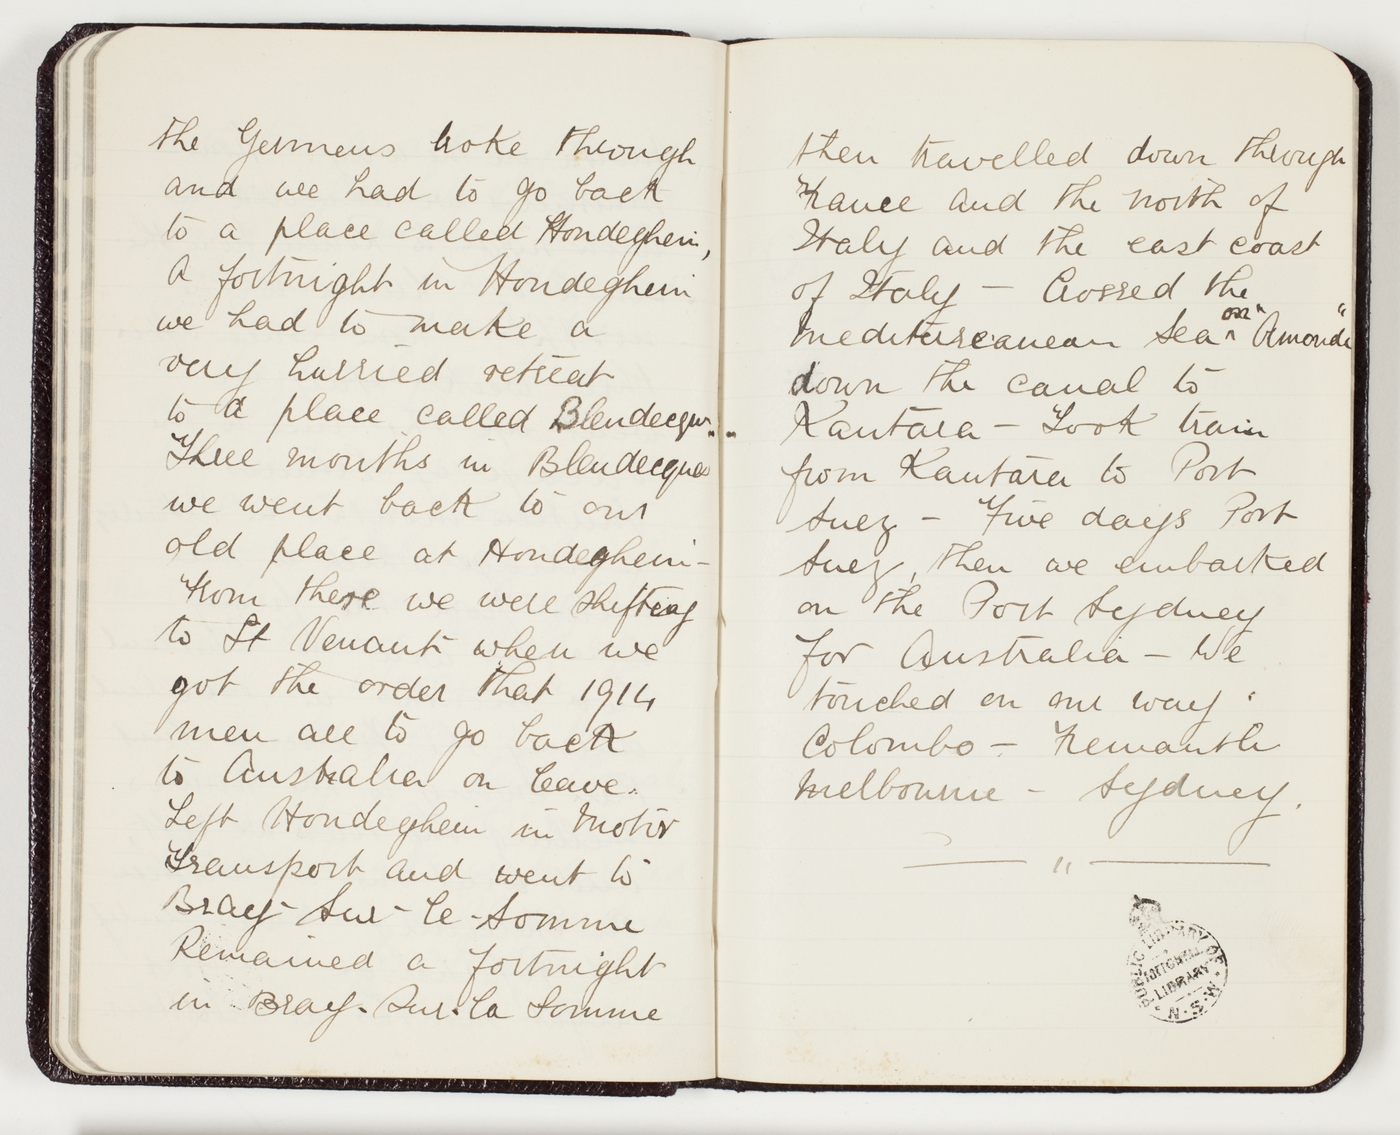 the Germens broke through
and we had to go back
to a place called Hondeghein,
A fortnight in Hondeghein
we had to make a
very hurried retreat
to a place called Blendecque..
Three months in Blendecques
we went back to our
old place at Hondeghein-
From there we were shifting
to St Venant when we
got the order that 1914
men are to go back
to Australia on leave.
Left Hondeghein in Motor
Transport and went to
Bray-Sur-le-Somme
Remained a fortnight
in Bray-Sur-la Somme
then travelled down through
France and the north of
Italy and the east coast
of Italy - Crossed the
Mediterreanean Sea on "Ormonde"
down the canal to
Kantara - Took train
from Kantara to Port
Suez - Five days Port
Suez, then we embarked
on the Port Sydney
for Australia - We
touched on our way.
Colombo - Fremantle
Melbourne - Sydney.
"
PUBLIC LIBRARY OF N.S.W.
MITCHELL
LIBRARY